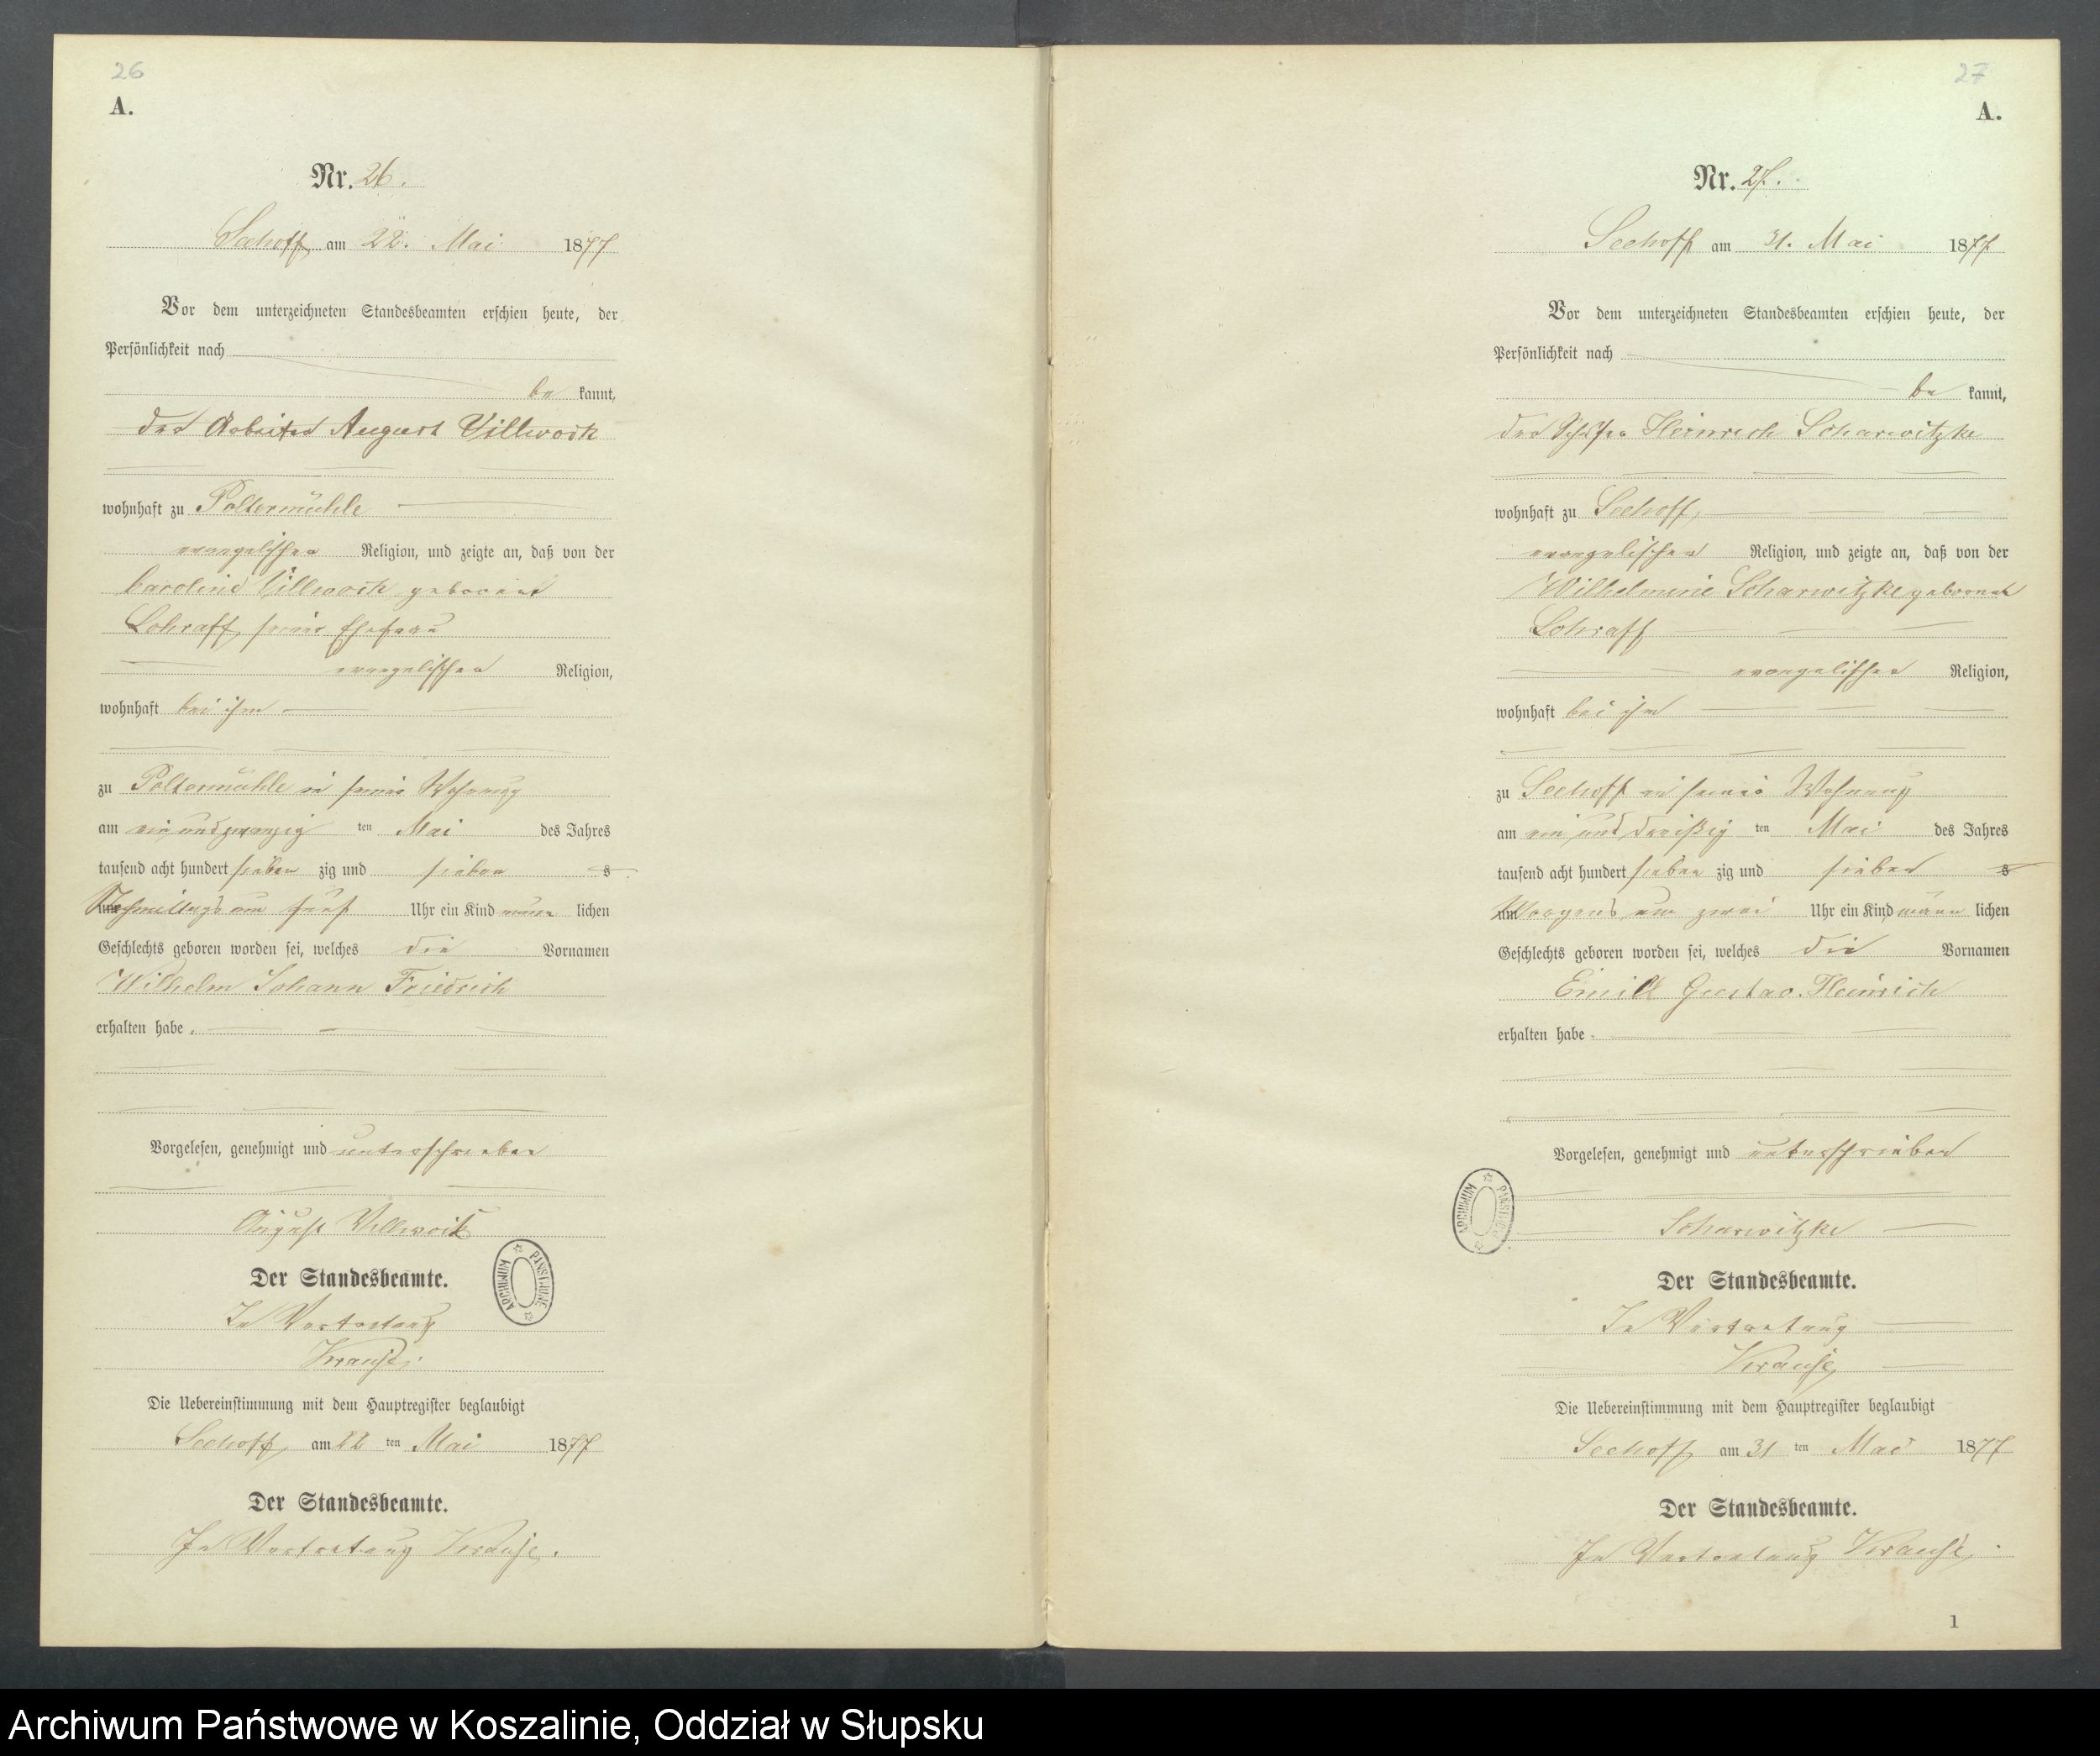 26
A.
Nr. 26.
Seehoff am 22. Mai 1877
Vor dem unterzeichneten Standesbeamten erschien heute, der
Persönlichkeit nach
be kannt,
der Arbeiter August Villwock
wohnhaft zu Poltermühle
evangelischer Religion, und zeigte an, daß von der
Karoline Villwock geborene
Lohraff, seine Ehefrau
evangelischer Religion,
wohnhaft bei ihm
zu Poltermühle in seiner Wohnung
am ein und zwanzig ten Mai des Jahres
tausend acht hundert sieben zig und sieben s
Nachmittags um fünf Uhr ein Kind männ lichen
Geschlechts geboren worden sei, welches die Vornamen
Wilhelm Johann Friedrich
erhalten habe.
Vorgelesen, genehmigt und unterschrieben
August Villwock
Der Standesbeamte.
In Vertretung
Krause.
Die Uebereinstimmung mit dem Hauptregister beglaubigt
Seehoff, am 22 ten Mai 1877
Der Standesbeamte.
In Vertretung Krause.
ARCHIWUM PAŃSTWOWE
27
A.
Nr. 27.
Seehoff am 31. Mai 1877
Vor dem unterzeichneten Standesbeamten erschien heute, der
Persönlichkeit nach
be kannt,
der Schäfer Heinrich Scharwitzke
wohnhaft zu Seehoff,
evangelischer Religion, und zeigte an, daß von der
Wilhelmine Scharwitzke geborene
Lohraff
evangelischer Religion,
wohnhaft bei ihm
zu Seehoff in seiner Wohnung
am ein und dreißig ten Mai des Jahres
tausend acht hundert sieben zig und sieben s
Morgens um zwei Uhr ein Kind männ lichen
Geschlechts geboren worden sei, welches die Vornamen
Emil Gustav Heinrich
erhalten habe.
Vorgelesen, genehmigt und unterschrieben
ARCHIWUM PAŃSTWOWE
Scharwitzke
Der Standesbeamte.
In Vertretung
Krause,
Die Uebereinstimmung mit dem Hauptregister beglaubigt
Seehoff, am 31 ten Mai 1877
Der Standesbeamte.
In Vertretung Krause.
1
Archiwum Państwowe w Koszalinie, Oddział w Słupsku